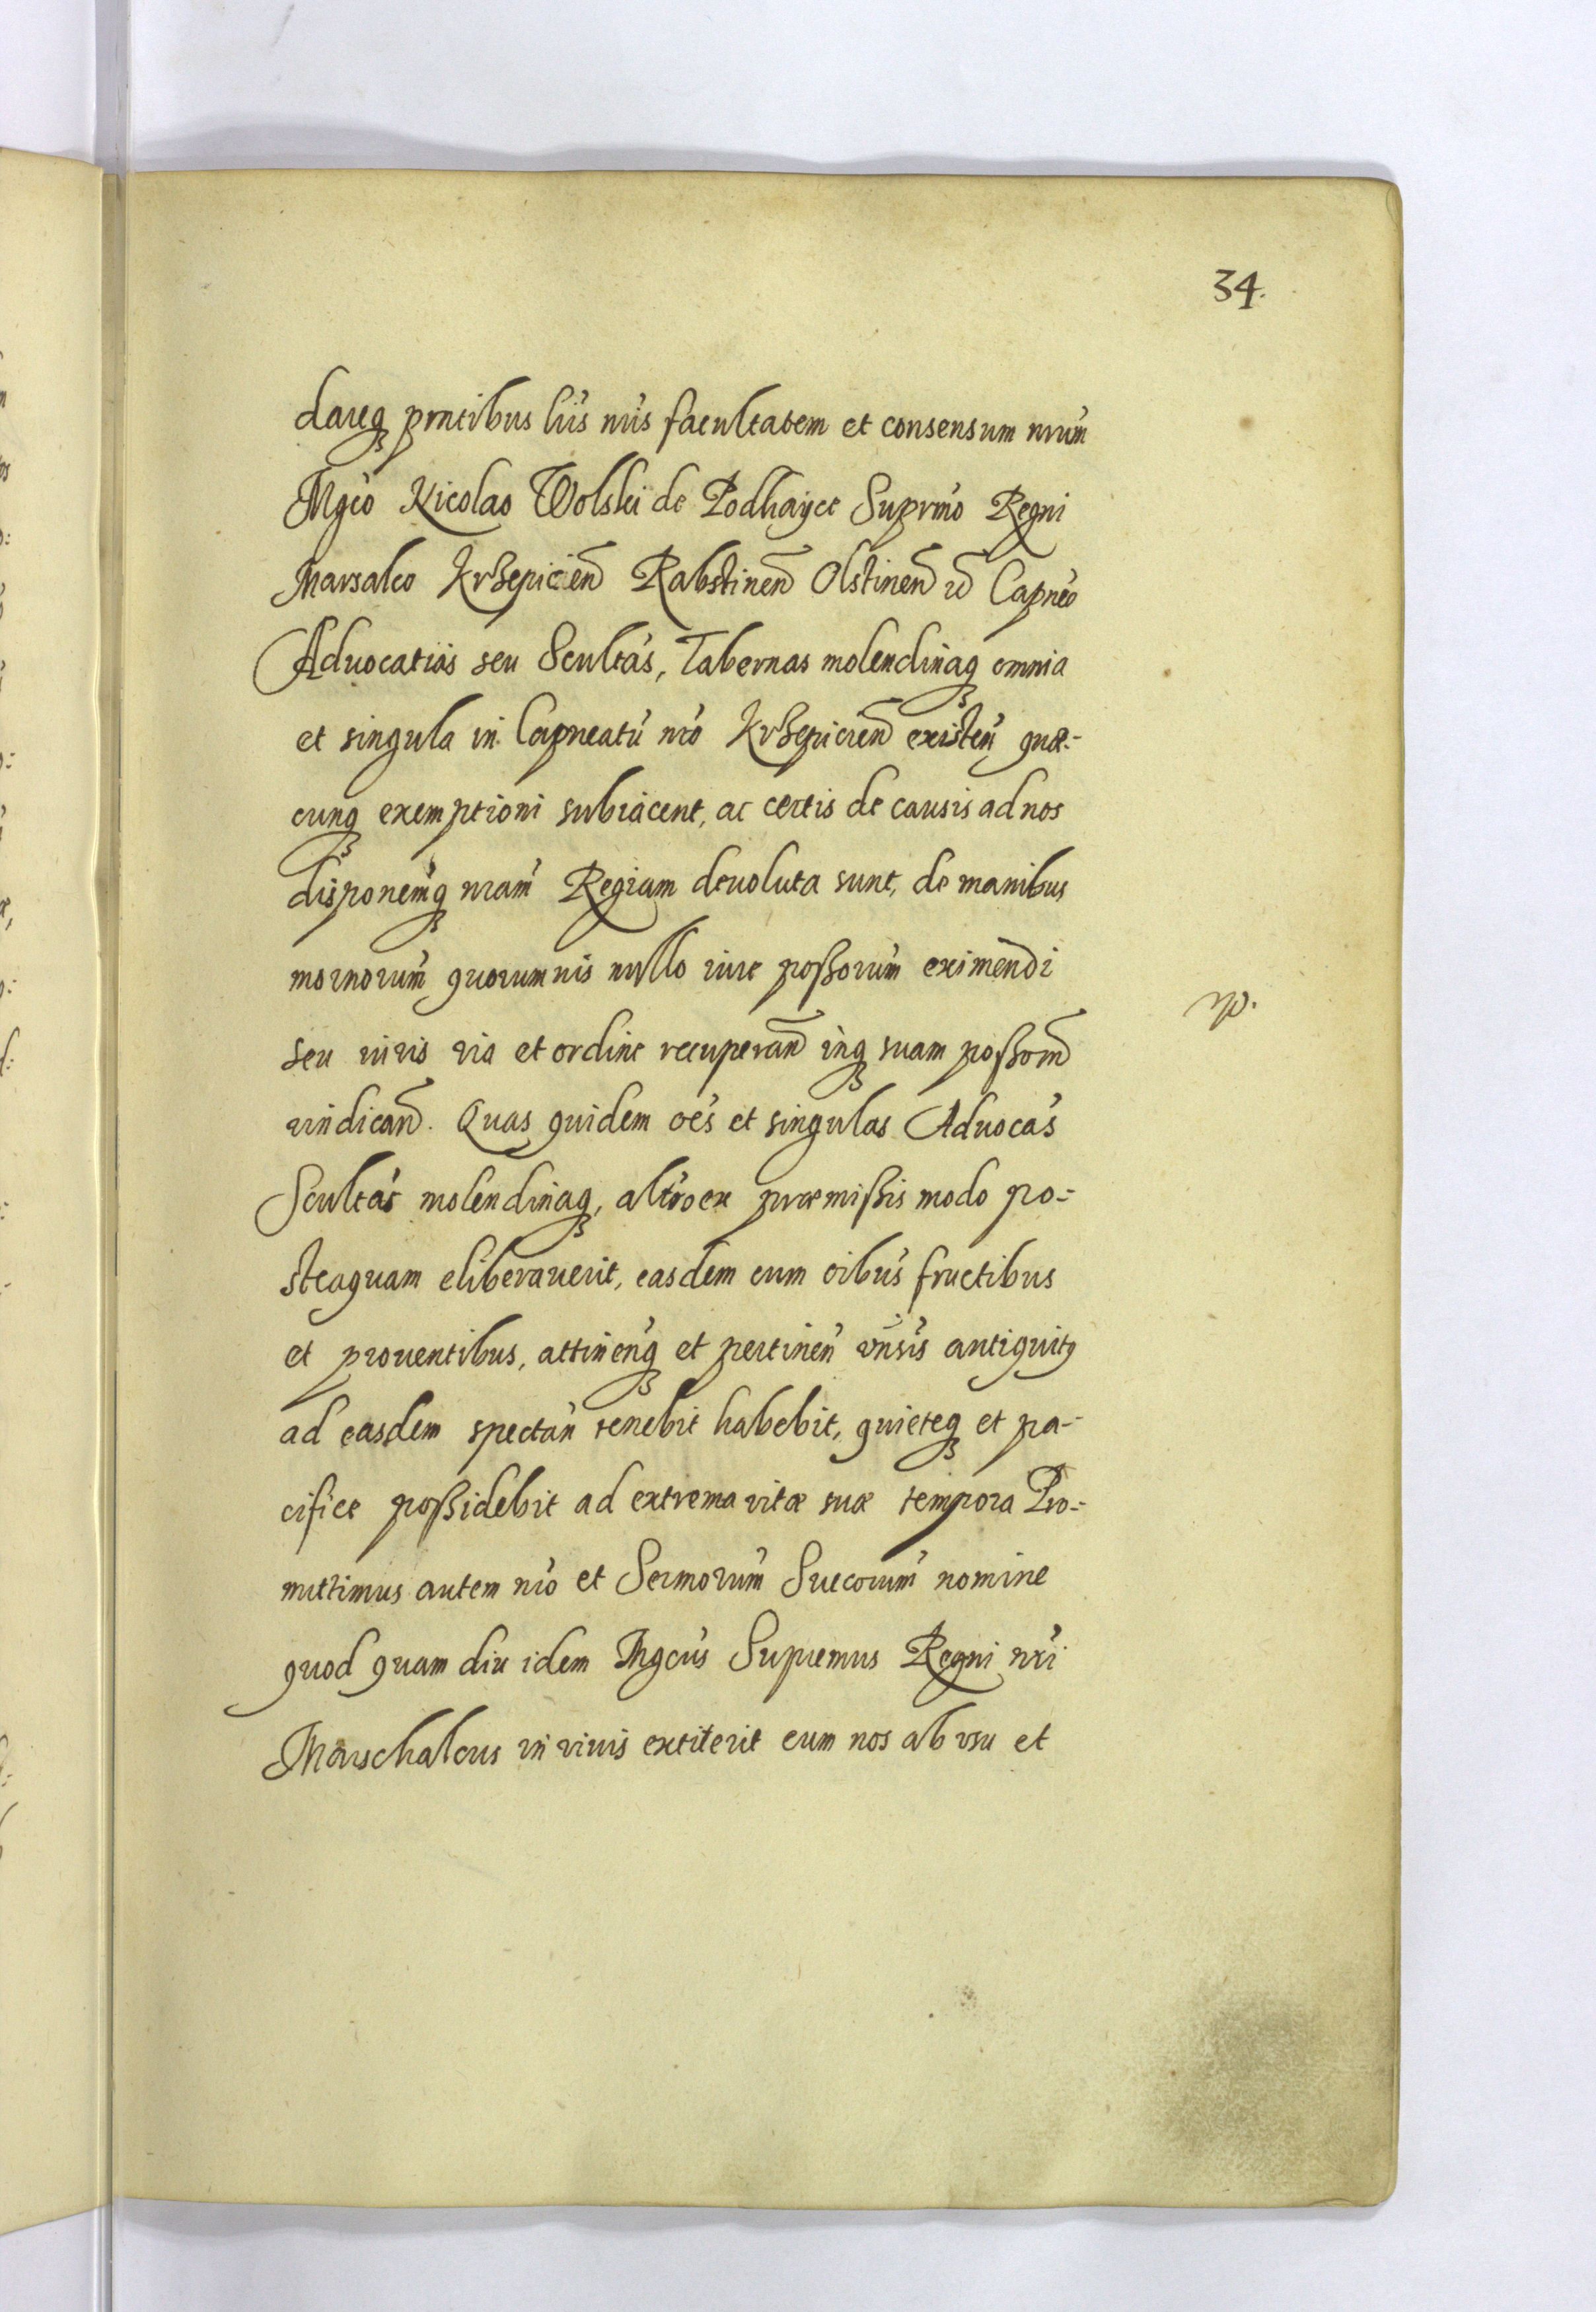 34.
dareq₃ prntibus lris nris facultatem et consensum nrum
Mgco Nicolao Wolski de Podhaÿce Suprmo Regni
Marsalco Krzepicien Rabstinen Olstinen Capneo
Aduocatias seu Scultas, Tabernas molendinaq₃ omnia
et singula in Capneatu nro Krzepicien existen quæ-
cunq₃ exemptioni subiacent, ac certis de causis ad nos
disponemq₃ nram Regiam deuoluta sunt, de manibus
mornorum quorumuis nullo iure possorum eximendi
seu iuris via et ordine recuperan inq₃ suam possom
vindican. Quas quidem oes et singulas Aduocas
Scultas molendinaq₃, altro ex præmissis modo po-
steaquam eliberauerit, easdem cum oibus fructibus
et prouentibus, attinenq₃ et pertinen vnsis antiquit9
ad easdem spectan tenebit habebit, quieteq₃ et pa-
cifice possidebit ad extrema vitæ suæ tempora Pro-
mittimus autem nro et Sermorum Succorum nomine
quod quam diu idem Mgcus Supremus Regni nri
Marschalcus in viuis extiterit eum nos ab vsu et